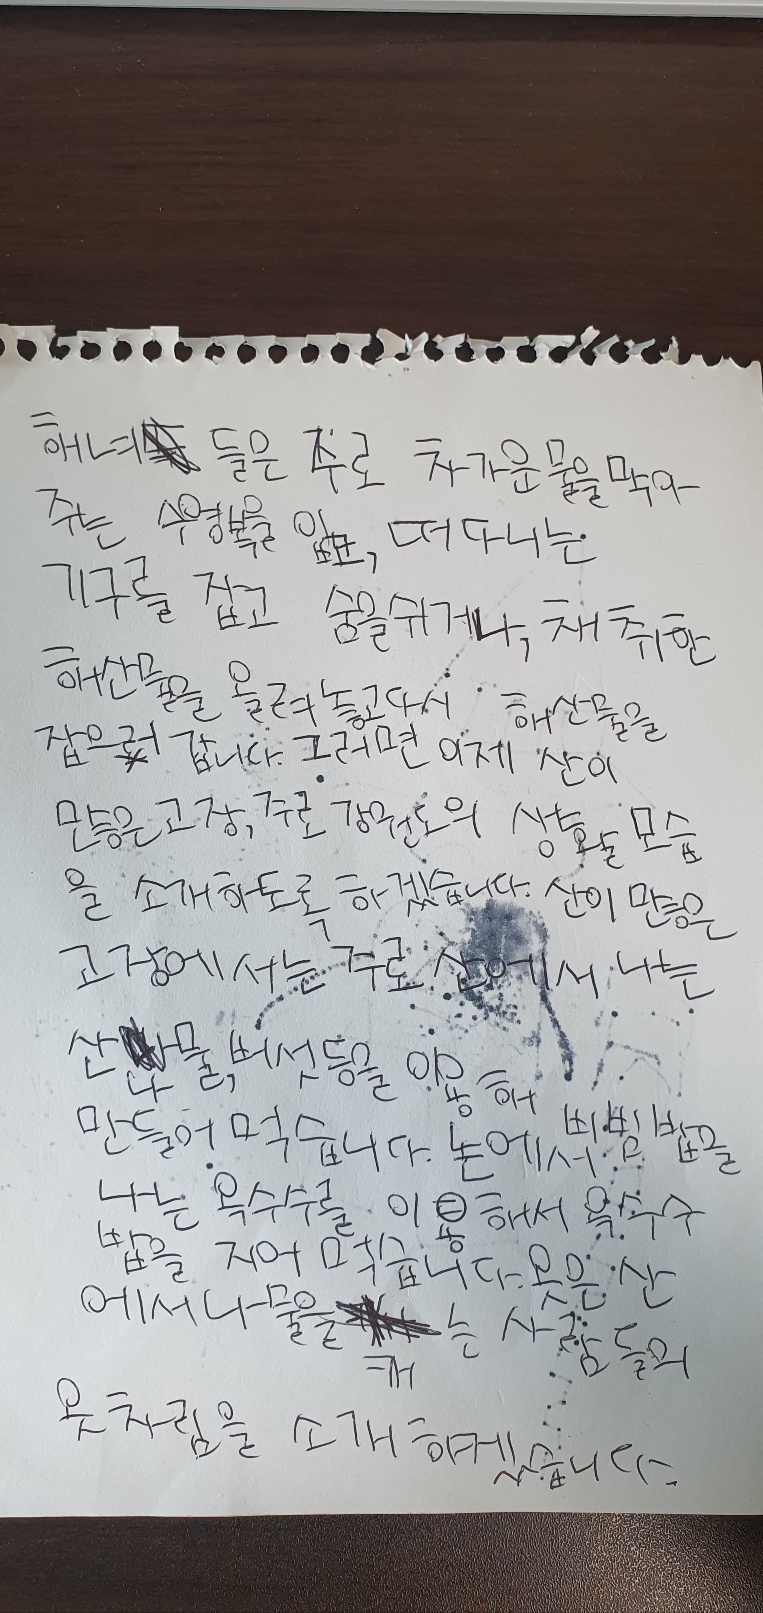 해녀들은 주로 차가운 물을 막아
주는 수영복을 입고, 떠다니는
기구를 잡고 숨을 쉬거나, 채취한
해산물을 올려놓고 다시 해산물을
잡으러 갑니다. 그러면 이제 산이
많은 고장, 주로 강원도의 생활 모습
을 소개하도록 하겠습니다. 산이 많은
고장에서는 주로 산에서 나는
산나물, 버섯 등을 이용해
만들어 먹습니다. 논에서 비빔밥을
나는 옥수수를 이용해서 옥수수
밥을 지어 먹습니다. 옷은 산
에서 나물을 캐는 사람들의
옷차림을 소개하겠습니다.